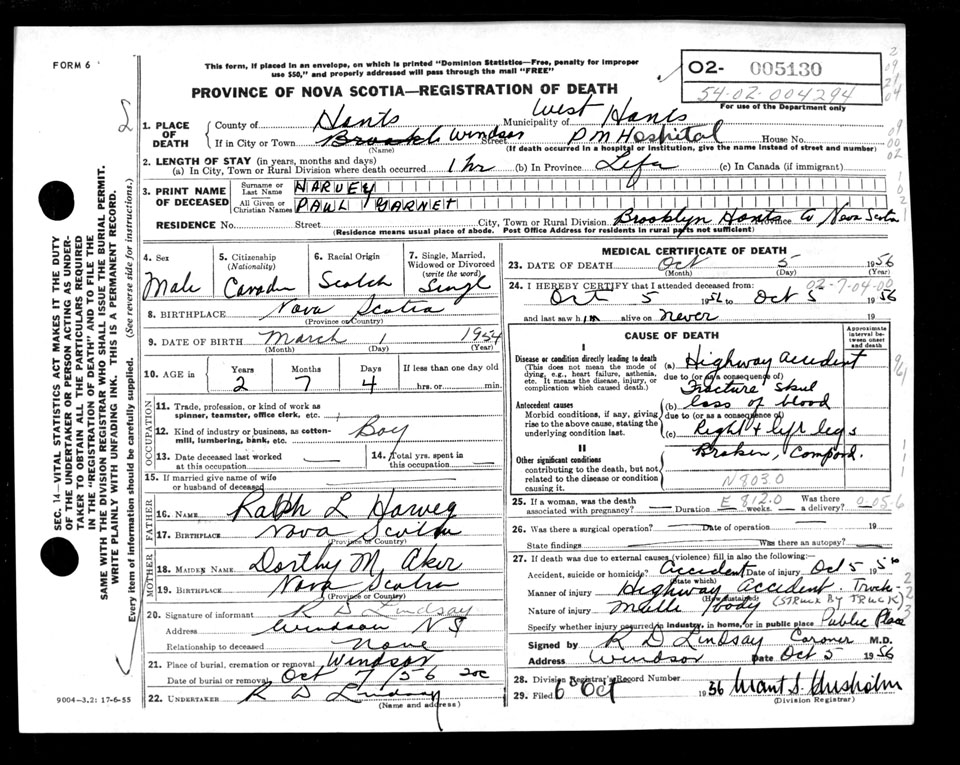 FORM 6
This form, if placed in an envelope, on which is printed "Dominion Statistics—Free, penalty for improper
use $50," and properly addressed will pass through the mail "FREE"
O2- 005130
54-02-004294
For use of the Department only
PROVINCE OF NOVA SCOTIA—REGISTRATION OF DEATH
1. PLACE OF DEATH
County of Hants Municipality of West Hants
If in City or Town Windsor Street P M Hospital House No.
(Name) (If death occurred in a hospital or institution, give the name instead of street and number)
2. LENGTH OF STAY (in years, months and days)
(a) In City, Town or Rural Division where death occurred 1 hr (b) In Province Life (c) In Canada (if immigrant)
3. PRINT NAME OF DECEASED
Surname or Last Name HARVEY
All Given or Christian Names PAUL GARNET
RESIDENCE No. Street City, Town or Rural Division Brooklyn Hants Co Nova Scotia Province
(Residence means usual place of abode. Post Office Address for residents in rural parts not sufficient)
4. Sex Male
5. Citizenship (Nationality) Canada
6. Racial Origin Scotch
7. Single, Married, Widowed or Divorced (write the word) Singl
8. BIRTHPLACE Nova Scotia
(Province or Country)
9. DATE OF BIRTH March 1 1954
(Month) (Day) (Year)
10. AGE in Years Months Days If less than one day old
2 7 4 hrs. or min.
OCCUPATION
11. Trade, profession, or kind of work as spinner, teamster, office clerk, etc.
12. Kind of industry or business, as cotton-mill, lumbering, bank, etc. Boy
13. Date deceased last worked at this occupation
14. Total yrs. spent in this occupation
15. If married give name of wife or husband of deceased
FATHER
16. NAME Ralph L Harvey
17. BIRTHPLACE Nova Scotia
(Province or Country)
MOTHER
18. MAIDEN NAME Dorthy M. Aker
19. BIRTHPLACE Nova Scotia
(Province or Country)
20. Signature of informant R D Lindsay
Address Windsor NS
Relationship to deceased None
21. Place of burial, cremation or removal Windsor
Date of burial or removal Oct 7/56
22. UNDERTAKER R D Lindsay
(Name and address)
MEDICAL CERTIFICATE OF DEATH
23. DATE OF DEATH Oct 5 1956
(Month) (Day) (Year)
02-7-04-00
24. I HEREBY CERTIFY that I attended deceased from:
Oct 5 1956 to Oct 5 1956
and last saw him alive on never 19
CAUSE OF DEATH
Approximate interval between onset and death
I
Disease or condition directly leading to death
(This does not mean the mode of dying, e.g., heart failure, asthenia, etc. It means the disease, injury, or complication which caused death.)
(a) Highway accident
due to (or as a consequence of)
Fracture Skul
Antecedent causes
Morbid conditions, if any, giving rise to the above cause, stating the underlying condition last.
(b) loss of blood
due to (or as a consequence of)
(c) Right + left legs
Broken, Compond.
II
Other significant conditions
contributing to the death, but not related to the disease or condition causing it.
N803.0
E 812.0
0-05-6
25. If a woman, was the death associated with pregnancy? Duration weeks. Was there a delivery?
26. Was there a surgical operation? Date of operation 19
State findings Was there an autopsy?
27. If death was due to external causes (violence) fill in also the following:—
Accident, suicide or homicide? Accident Date of injury Oct 5 1956
(State which)
Manner of injury Highway Accident Truck
(How sustained)
Nature of injury body (STRUCK BY TRUCK)
Specify whether injury occurred in industry, in home, or in public place Public Place
Signed by R D Lindsay Coroner M.D.
Address Windsor Date Oct 5 1956
28. Division Registrar's Record Number
29. Filed 6 Oct 1956 Grant S. Chisholm
(Division Registrar)
SEC. 14—VITAL STATISTICS ACT MAKES IT THE DUTY
OF THE UNDERTAKER OR PERSON ACTING AS UNDER-
TAKER TO OBTAIN ALL THE PARTICULARS REQUIRED
IN THE "REGISTRATION OF DEATH" AND TO FILE THE
SAME WITH THE DIVISION REGISTRAR WHO SHALL ISSUE THE BURIAL PERMIT.
WRITE PLAINLY WITH UNFADING INK. THIS IS A PERMANENT RECORD.
Every item of information should be carefully supplied. (See reverse side for instructions.)
9004—3.2: 17-6-55